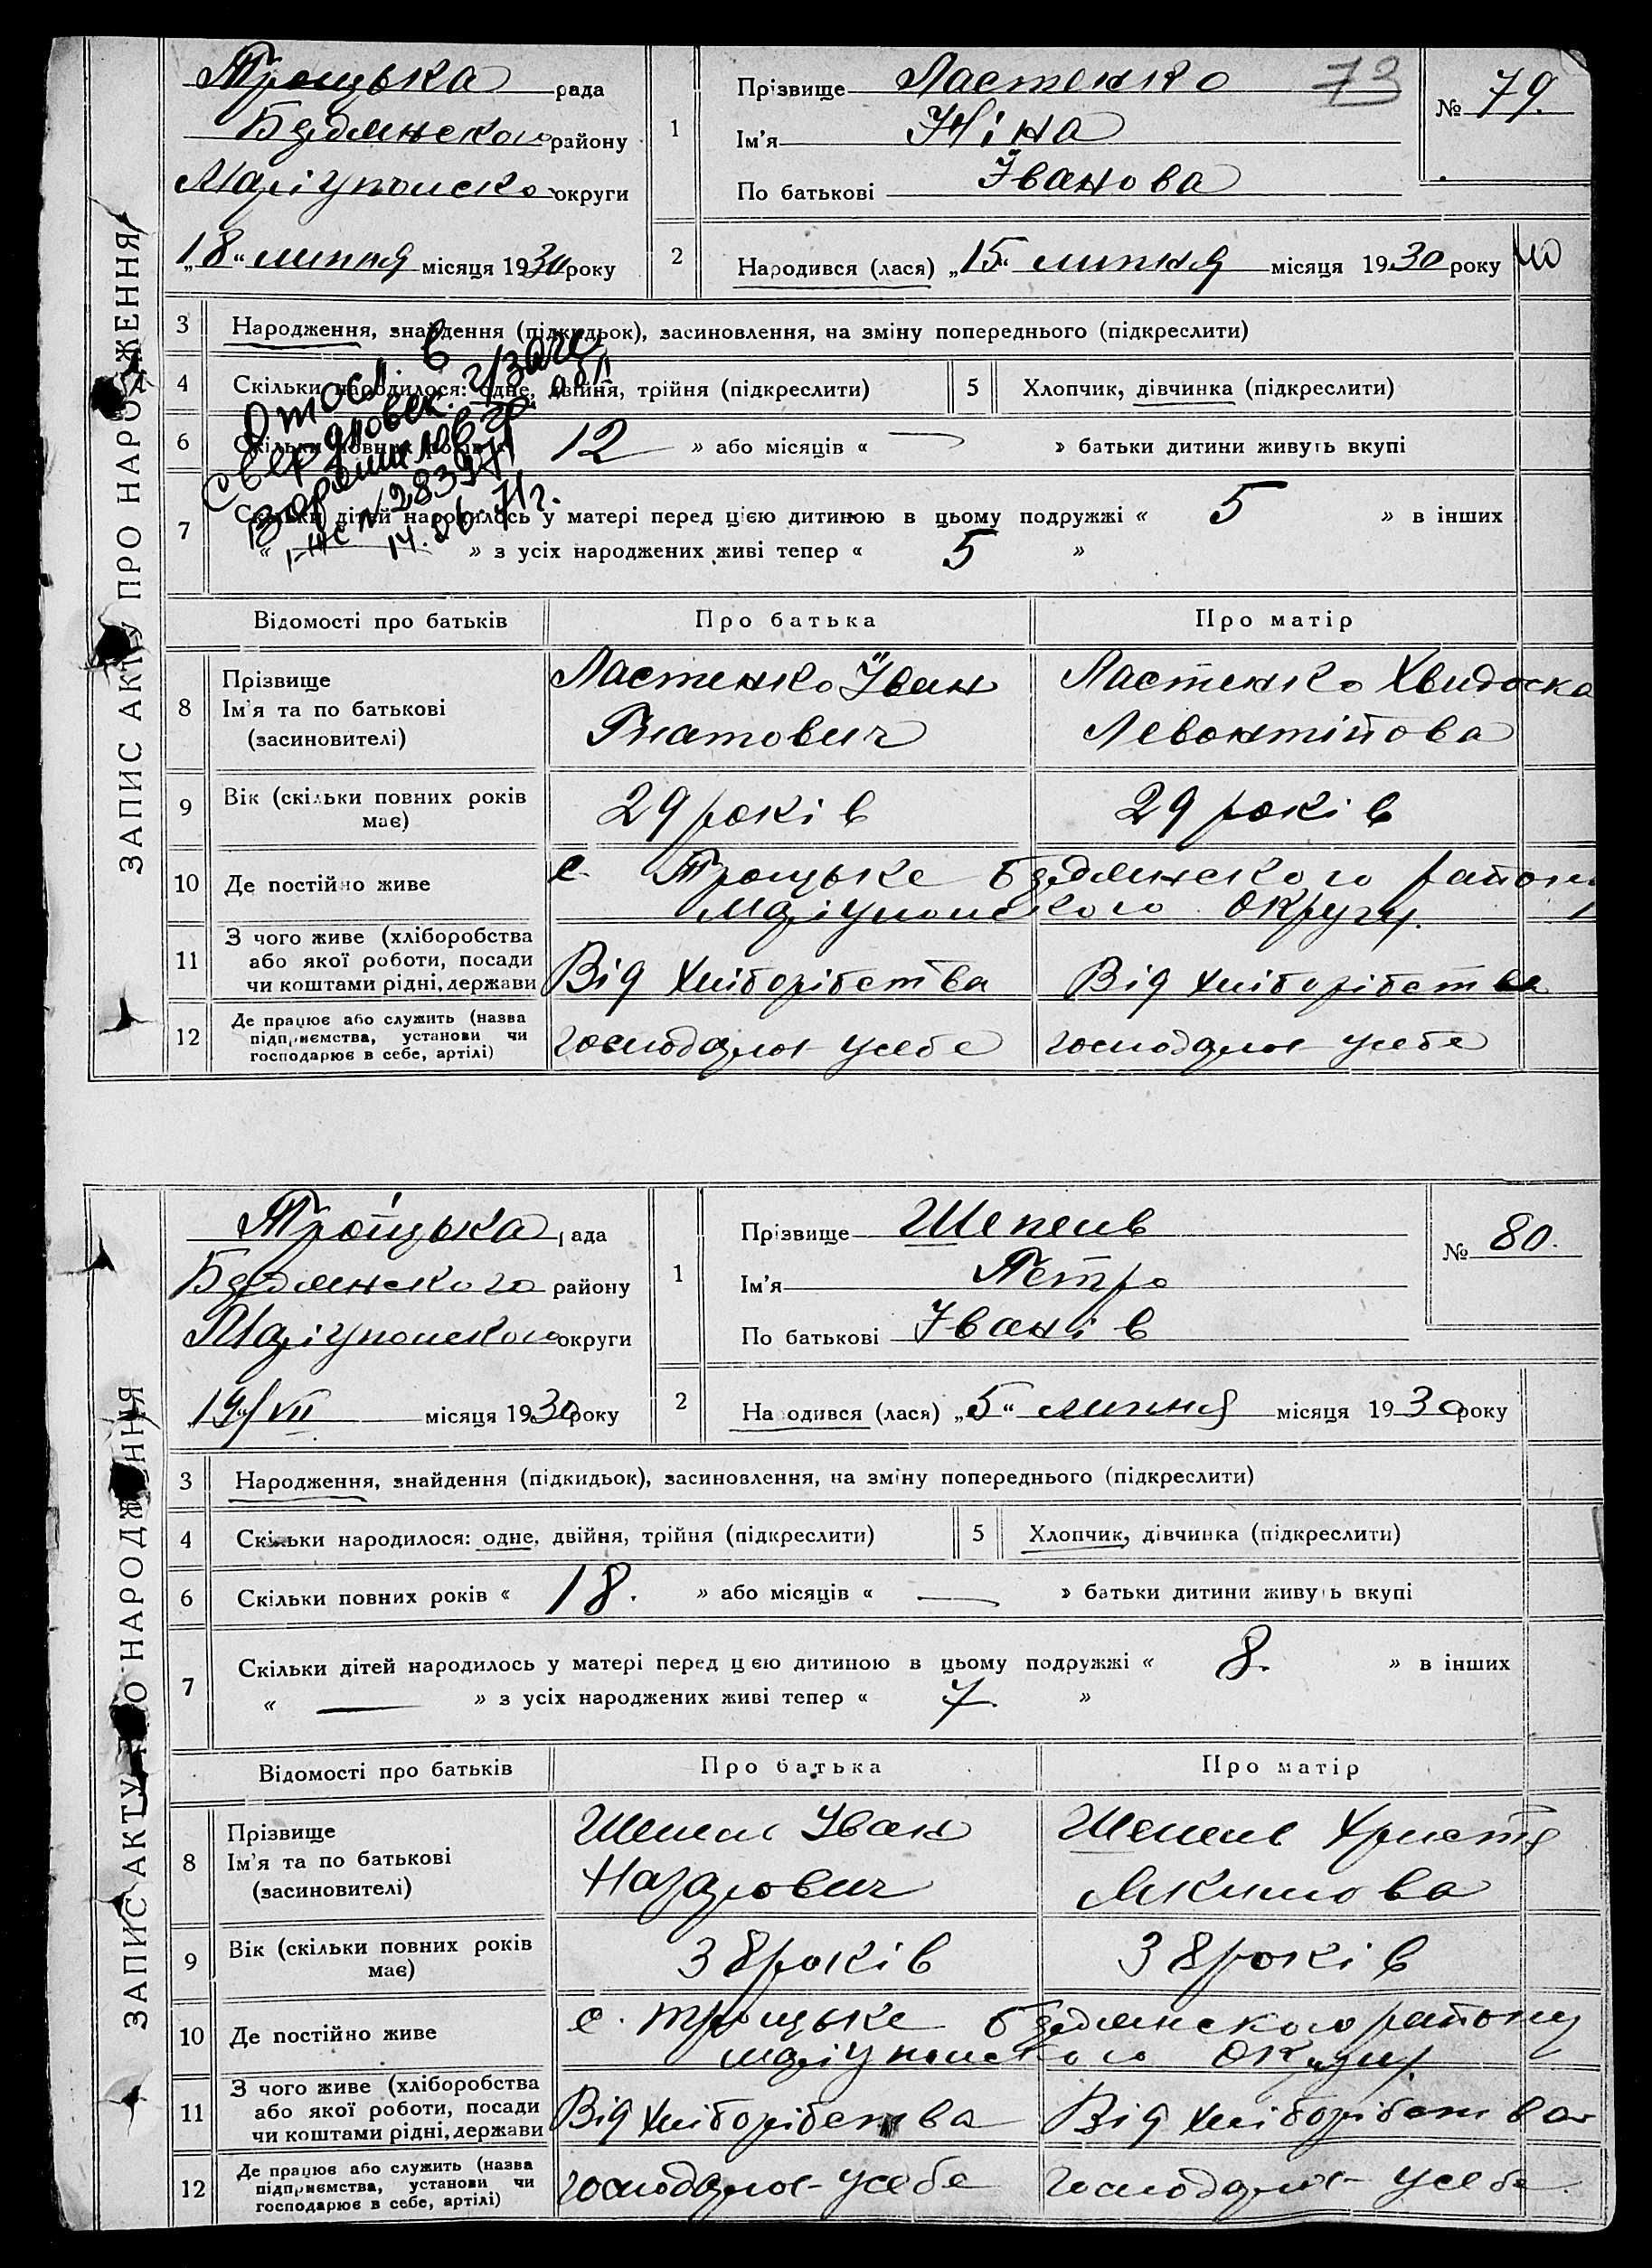 ЗАПИС АКТУ ПРО НАРОДЖЕННЯ
Троцька рада
Бердянского району
Маріупольско округи
„18“ липня місяця 1930 року
1
Прізвище Ластенко 73
Ім'я Ніна
По батькові Іванова
№ 79.
2
Народився (лася) „15“ липня місяця 1930 року
3 Народження, знайдення (підкидьок), засиновлення, на зміну попереднього (підкреслити)
4 Скільки народилося: одне, двійня, трійня (підкреслити) 5 Хлопчик, дівчинка (підкреслити)
6 Скільки повних років « 12 » або місяців « — » батьки дитини живуть вкупі
7 Скільки дітей народилось у матері перед цією дитиною в цьому подружжі « 5 » в інших
« » з усіх народжених живі тепер « 5 »
в г/загс
Свердловск. обл
№ 28
14. 06. 71г.
Відомості про батьків Про батька Про матір
8 Прізвище
Ім'я та по батькові
(засиновителі)
Ластенко Іван
Ластенко Хвидоска
Левонтійова
9 Вік (скільки повних років має) 29 років 29 років
10 Де постійно живе с. Троцьке Бердянского район
Маріупольского округу.
11 З чого живе (хліборобства
або якої роботи, посади
чи коштами рідні, держави
Від хліборібства Від хліборібства
12 Де працює або служить (назва
підприємства, установи чи
господарює в себе, артілі)
господарює усебе господарює усебе
ЗАПИС АКТУ ПРО НАРОДЖЕННЯ
Троїцька рада
Бердянского району
Маріупольского округи
19/VII місяця 1930 року
1
Прізвище Шепель
Ім'я Петро
По батькові Іванів
№ 80.
2
Народився (лася) „5“ липня місяця 1930 року
3 Народження, знайдення (підкидьок), засиновлення, на зміну попереднього (підкреслити)
4 Скільки народилося: одне, двійня, трійня (підкреслити) 5 Хлопчик, дівчинка (підкреслити)
6 Скільки повних років « 18. » або місяців « — » батьки дитини живуть вкупі
7 Скільки дітей народилось у матері перед цією дитиною в цьому подружжі « 8. » в інших
« — » з усіх народжених живі тепер « 7. »
Відомості про батьків Про батька Про матір
8 Прізвище
Ім'я та по батькові
(засиновителі)
Шепель Іван Шепель Христя
Назарович Якимова
9 Вік (скільки повних років має) 38 років 38 років
10 Де постійно живе с. Троцьке Бердянского району
Маріупольского округу.
11 З чого живе (хліборобства
або якої роботи, посади
чи коштами рідні, держави
Від хліборібства Від хліборібства
12 Де працює або служить (назва
підприємства, установи чи
господарює в себе, артілі)
господарює усебе господарює усебе.